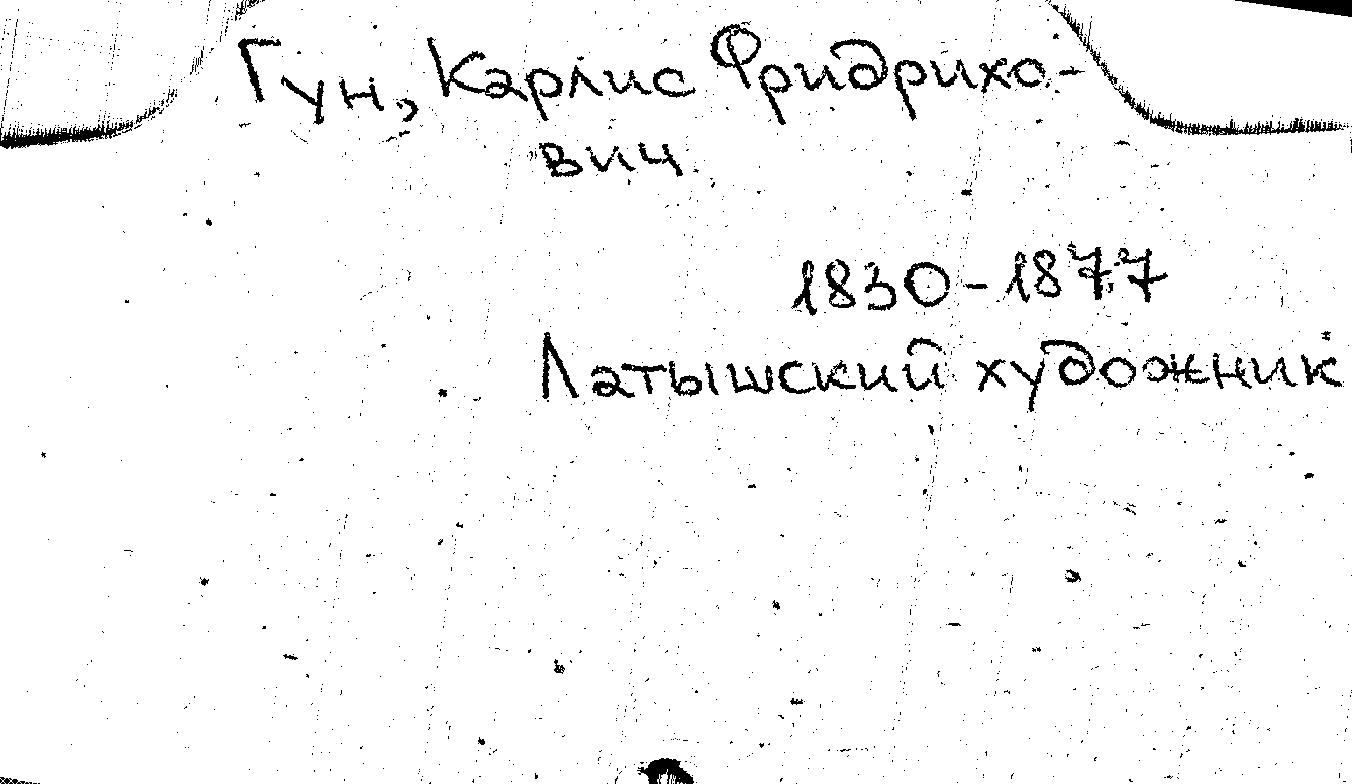 Гун, Карлис Фридрихо-
вич
1830-1877
Латышский художник